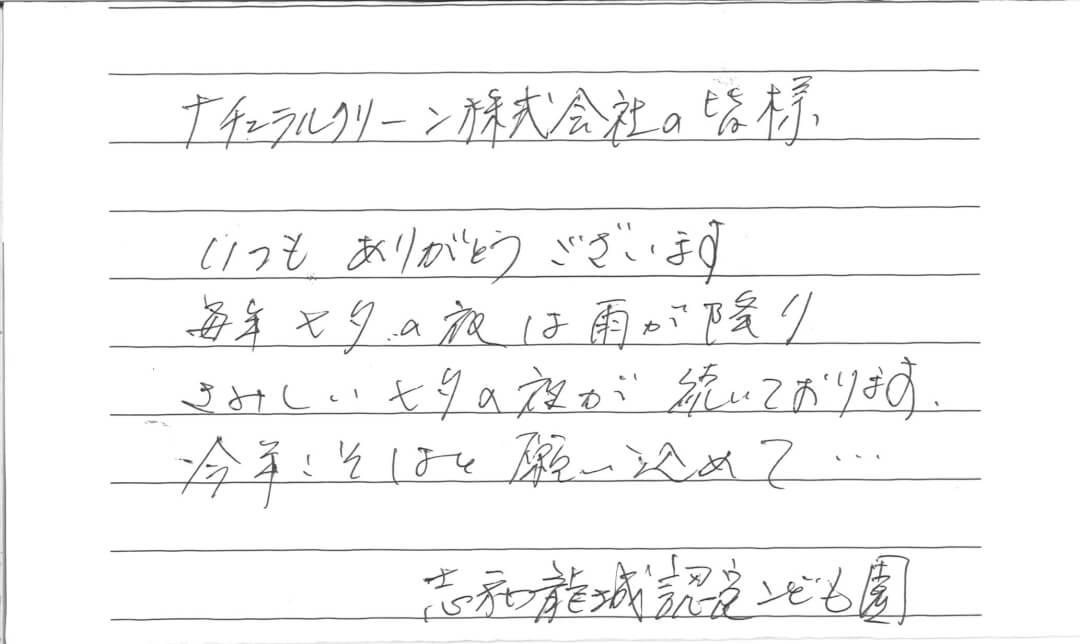 ナチュラルクリーン株式会社の皆様
いつも ありがとう ございます
毎年 七夕の夜は雨が降り
さみしい七夕の夜が 続いております.
今年こそはと願い込めて…
志和龍城認定こども園